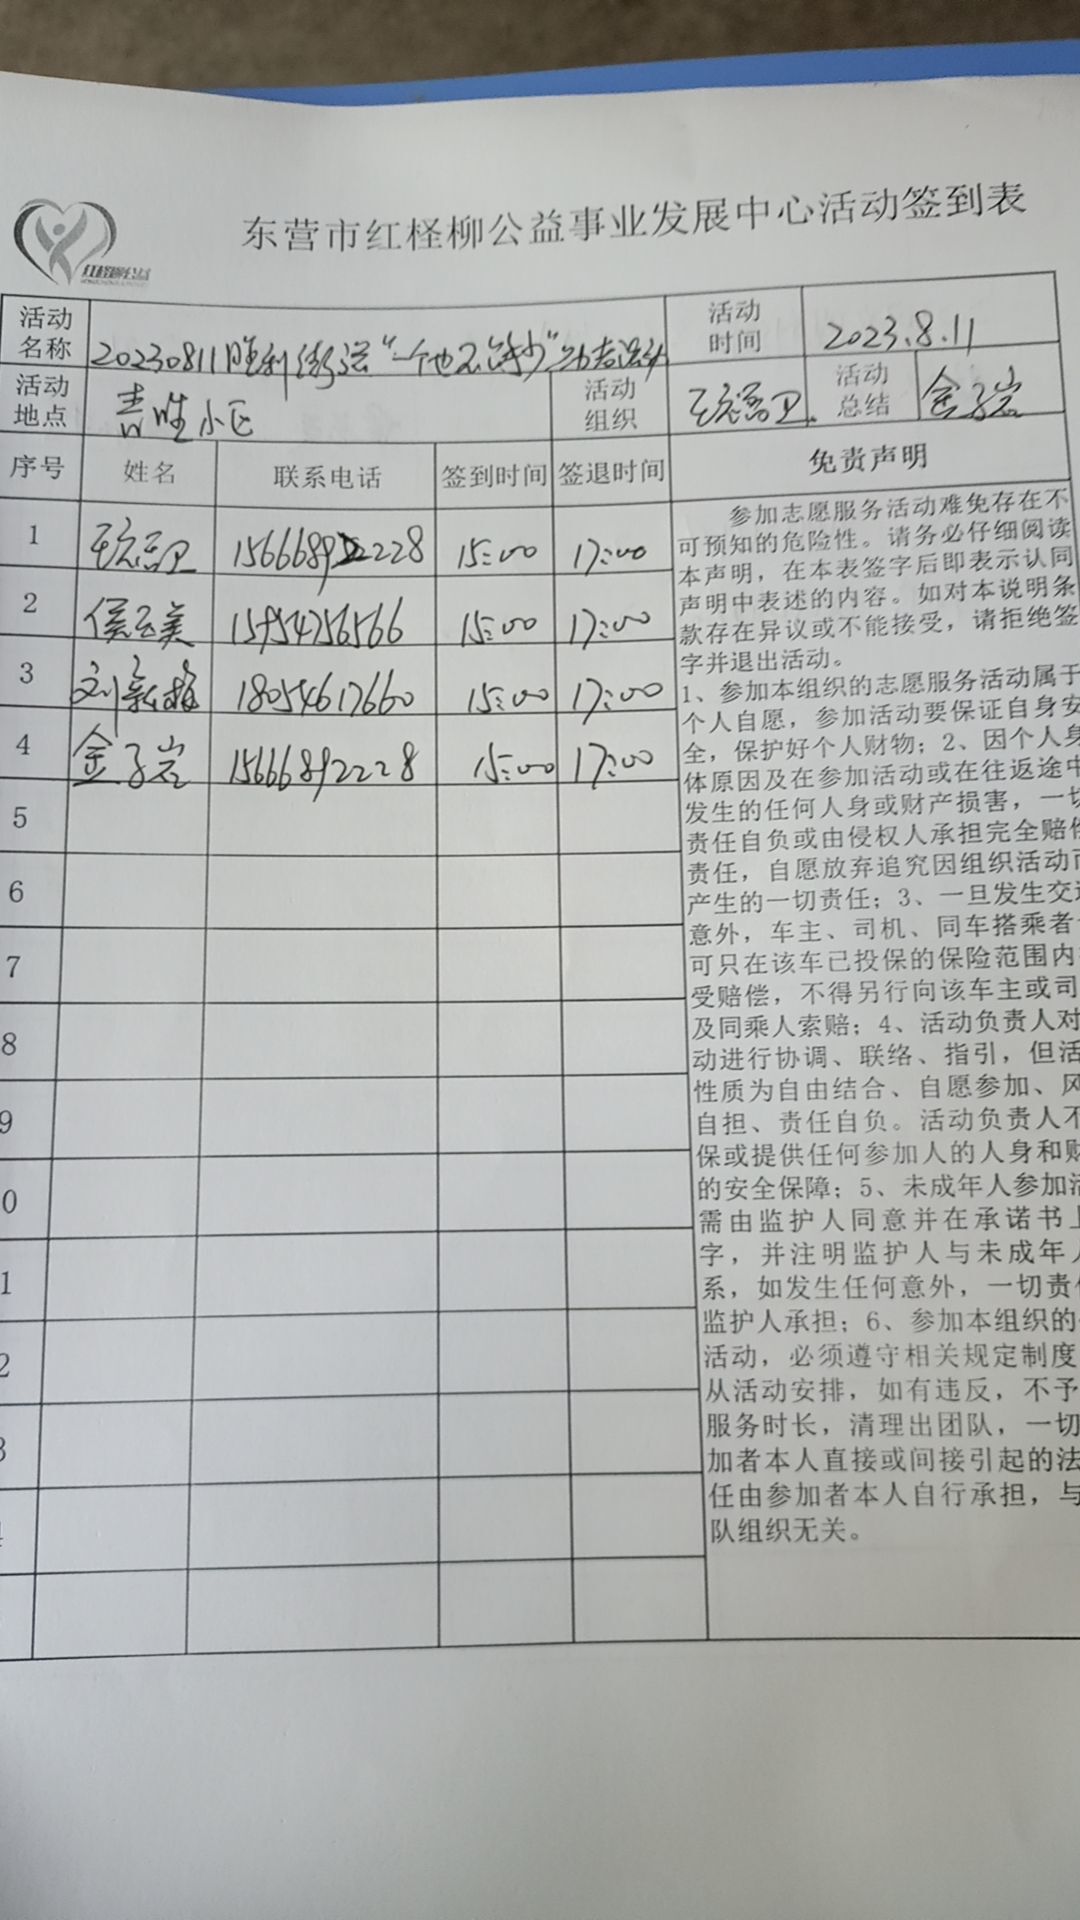 东营市红柽柳公益事业发展中心活动签到表
红柽柳公益
活动名称 20230811胜利街道"一个也不能少"助老活动 活动时间 2023.8.11
活动地点 吉胜小区 活动组织 卫 活动总结 金子岩
序号 姓名 联系电话 签到时间 签退时间 免责声明
1 卫 15666892228 15:00 17:00
2 侯玉美 15954756566 15:00 17:00
3 刘新梅 18054617660 15:00 17:00
4 金子岩 15666892228 15:00 17:00
5
6
7
8
9
0
1
2
3
参加志愿服务活动难免存在不
可预知的危险性。请务必仔细阅读
本声明，在本表签字后即表示认同
声明中表述的内容。如对本说明条
款存在异议或不能接受，请拒绝签
字并退出活动。
1、参加本组织的志愿服务活动属于
个人自愿，参加活动要保证自身安
全，保护好个人财物；2、因个人身
体原因及在参加活动或在往返途中
发生的任何人身或财产损害，一切
责任自负或由侵权人承担完全赔偿
责任，自愿放弃追究因组织活动而
产生的一切责任；3、一旦发生交通
意外，车主、司机、同车搭乘者
可只在该车已投保的保险范围内
受赔偿，不得另行向该车主或司
及同乘人索赔；4、活动负责人对
动进行协调、联络、指引，但活
性质为自由结合、自愿参加、风
自担、责任自负。活动负责人不
保或提供任何参加人的人身和财
的安全保障；5、未成年人参加活
需由监护人同意并在承诺书上
字，并注明监护人与未成年人
系，如发生任何意外，一切责任
监护人承担；6、参加本组织的
活动，必须遵守相关规定制度
从活动安排，如有违反，不予
服务时长，清理出团队，一切
加者本人直接或间接引起的法
任由参加者本人自行承担，与
队组织无关。